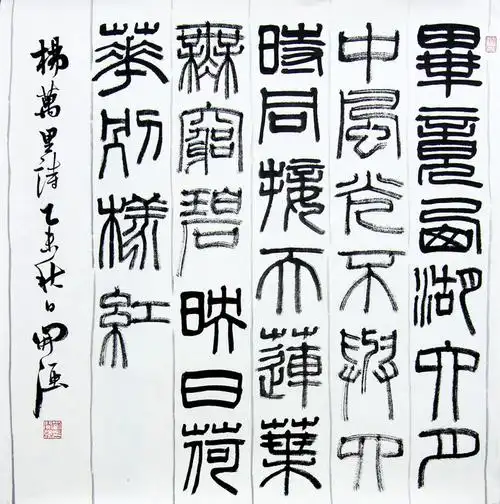 畢竟西湖六月
中風光不與四
時同接天蓮葉
無窮碧映日荷
華別樣紅
楊萬里詩乙未秋日開